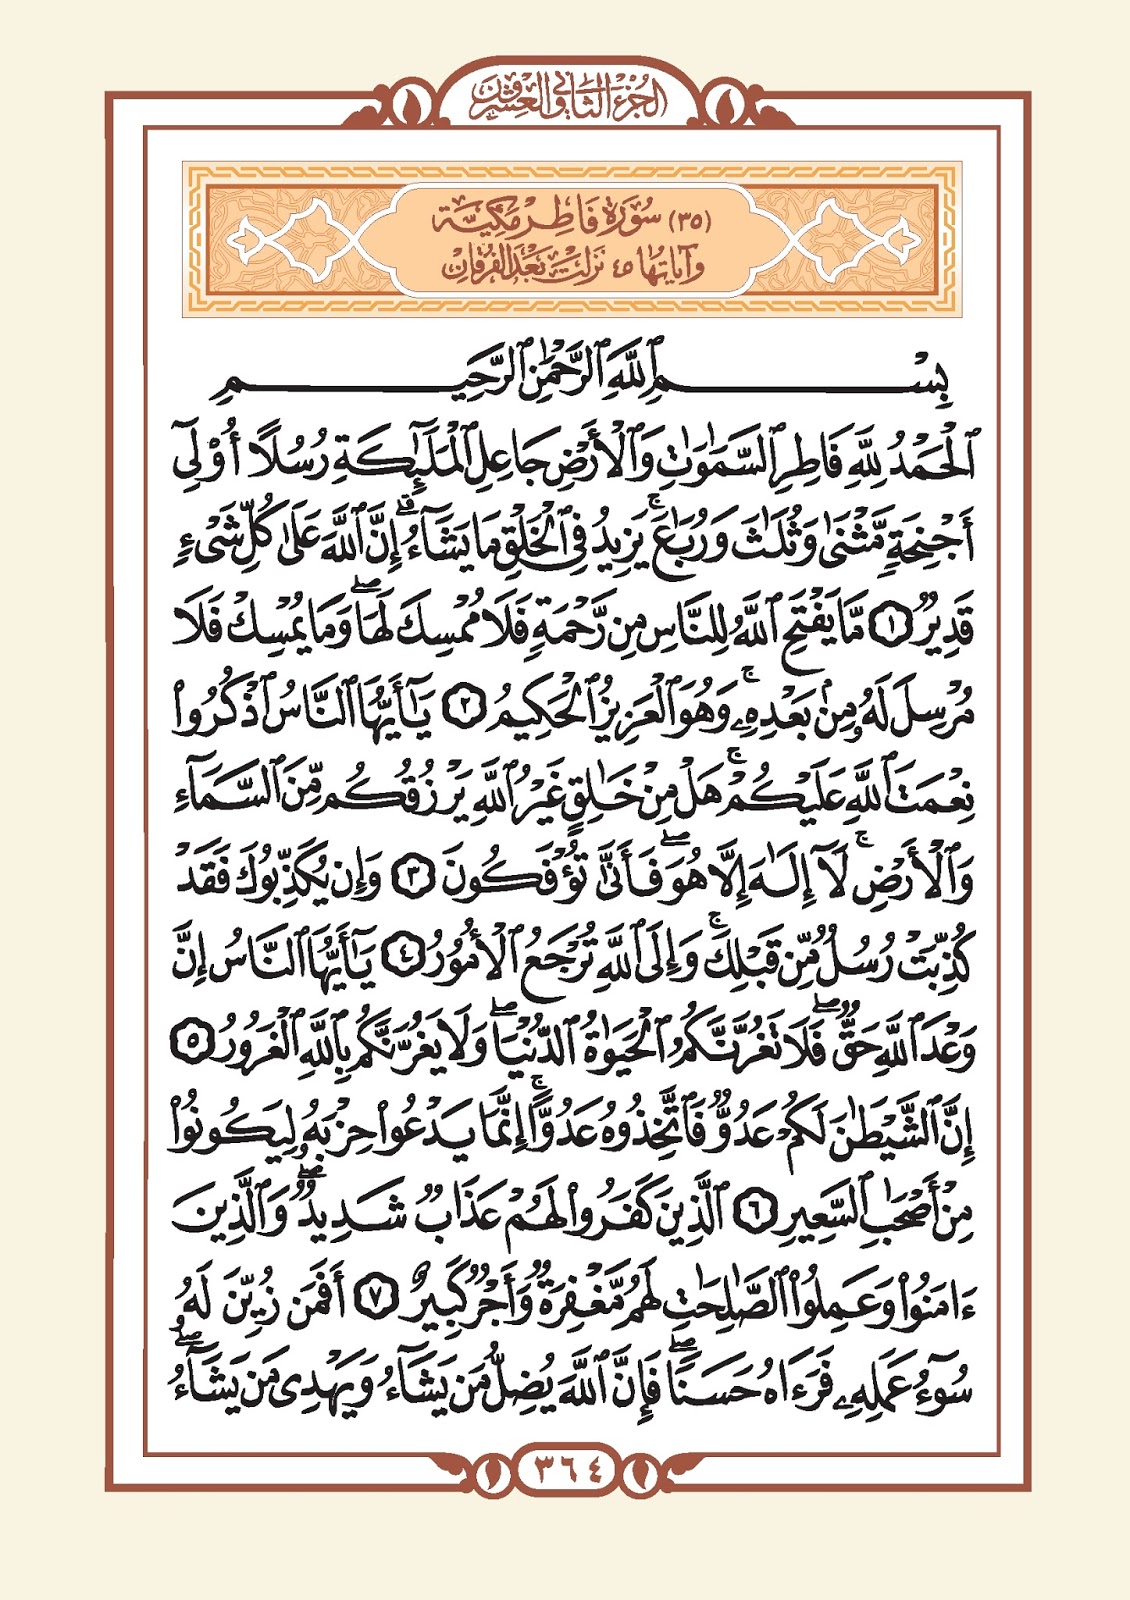 الجزء الثاني والعشرون
(٣٥) سورة فاطر مكية
وآياتها ٤٥ نزلت بعد الفرقان
بِسْمِ ٱللَّهِ ٱلرَّحْمَٰنِ ٱلرَّحِيمِ
ٱلْحَمْدُ لِلَّهِ فَاطِرِ ٱلسَّمَٰوَٰتِ وَٱلْأَرْضِ جَاعِلِ ٱلْمَلَٰٓئِكَةِ رُسُلًا أُو۟لِىٓ
أَجْنِحَةٍ مَّثْنَىٰ وَثُلَٰثَ وَرُبَٰعَ ۚ يَزِيدُ فِى ٱلْخَلْقِ مَا يَشَآءُ ۚ إِنَّ ٱللَّهَ عَلَىٰ كُلِّ شَىْءٍ
قَدِيرٌ ١ مَّا يَفْتَحِ ٱللَّهُ لِلنَّاسِ مِن رَّحْمَةٍ فَلَا مُمْسِكَ لَهَا ۖ وَمَا يُمْسِكْ فَلَا
مُرْسِلَ لَهُۥ مِنۢ بَعْدِهِۦ ۚ وَهُوَ ٱلْعَزِيزُ ٱلْحَكِيمُ ٢ يَٰٓأَيُّهَا ٱلنَّاسُ ٱذْكُرُوا۟
نِعْمَتَ ٱللَّهِ عَلَيْكُمْ ۚ هَلْ مِنْ خَٰلِقٍ غَيْرُ ٱللَّهِ يَرْزُقُكُم مِّنَ ٱلسَّمَآءِ
وَٱلْأَرْضِ ۚ لَآ إِلَٰهَ إِلَّا هُوَ ۖ فَأَنَّىٰ تُؤْفَكُونَ ٣ وَإِن يُكَذِّبُوكَ فَقَدْ
كُذِّبَتْ رُسُلٌ مِّن قَبْلِكَ ۚ وَإِلَى ٱللَّهِ تُرْجَعُ ٱلْأُمُورُ ٤ يَٰٓأَيُّهَا ٱلنَّاسُ إِنَّ
وَعْدَ ٱللَّهِ حَقٌّ ۖ فَلَا تَغُرَّنَّكُمُ ٱلْحَيَوٰةُ ٱلدُّنْيَا ۖ وَلَا يَغُرَّنَّكُم بِٱللَّهِ ٱلْغَرُورُ ٥
إِنَّ ٱلشَّيْطَٰنَ لَكُمْ عَدُوٌّ فَٱتَّخِذُوهُ عَدُوًّا ۚ إِنَّمَا يَدْعُوا۟ حِزْبَهُۥ لِيَكُونُوا۟
مِنْ أَصْحَٰبِ ٱلسَّعِيرِ ٦ ٱلَّذِينَ كَفَرُوا۟ لَهُمْ عَذَابٌ شَدِيدٌ ۖ وَٱلَّذِينَ
ءَامَنُوا۟ وَعَمِلُوا۟ ٱلصَّٰلِحَٰتِ لَهُم مَّغْفِرَةٌ وَأَجْرٌ كَبِيرٌ ٧ أَفَمَن زُيِّنَ لَهُۥ
سُوٓءُ عَمَلِهِۦ فَرَءَاهُ حَسَنًا ۖ فَإِنَّ ٱللَّهَ يُضِلُّ مَن يَشَآءُ وَيَهْدِى مَن يَشَآءُ ۖ
٣٦٤